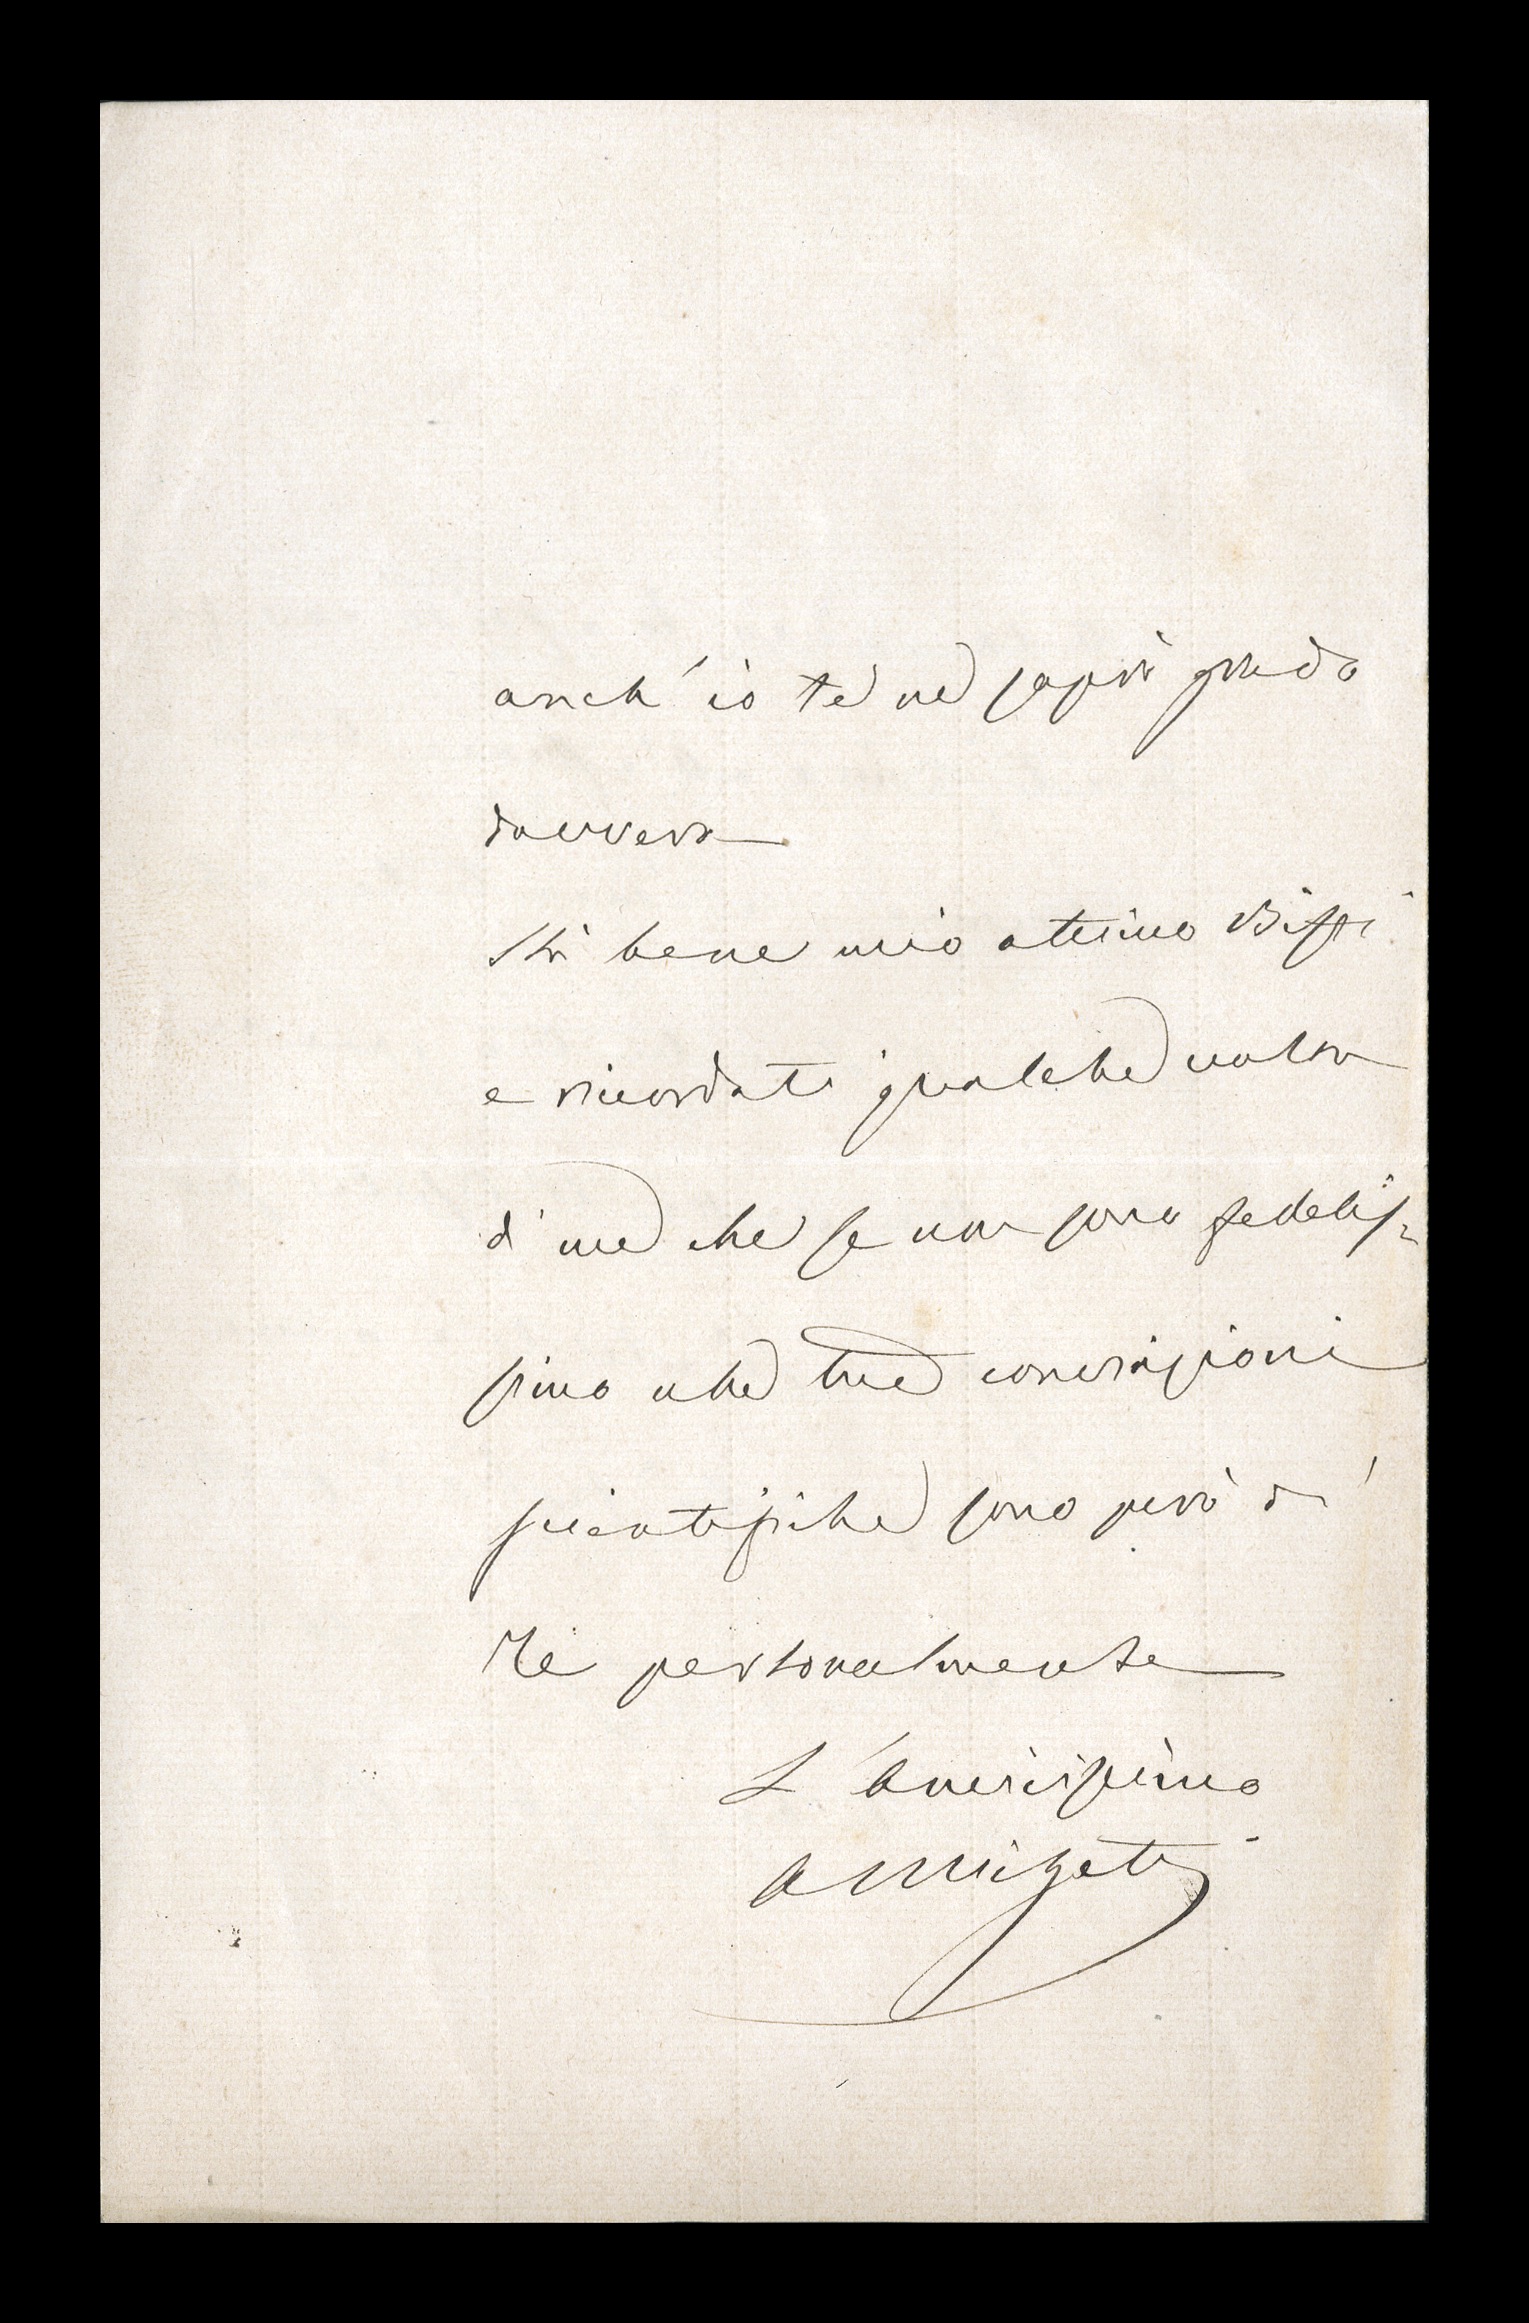 anch'io te ne saprò grado
davvero
Stà bene mio ottimo Biffi
e ricordati qualche volta
di me che se non sono fedelis-
simo alle tue convinzioni
scientifiche sono però di
Te personalmente
L'amicissimo